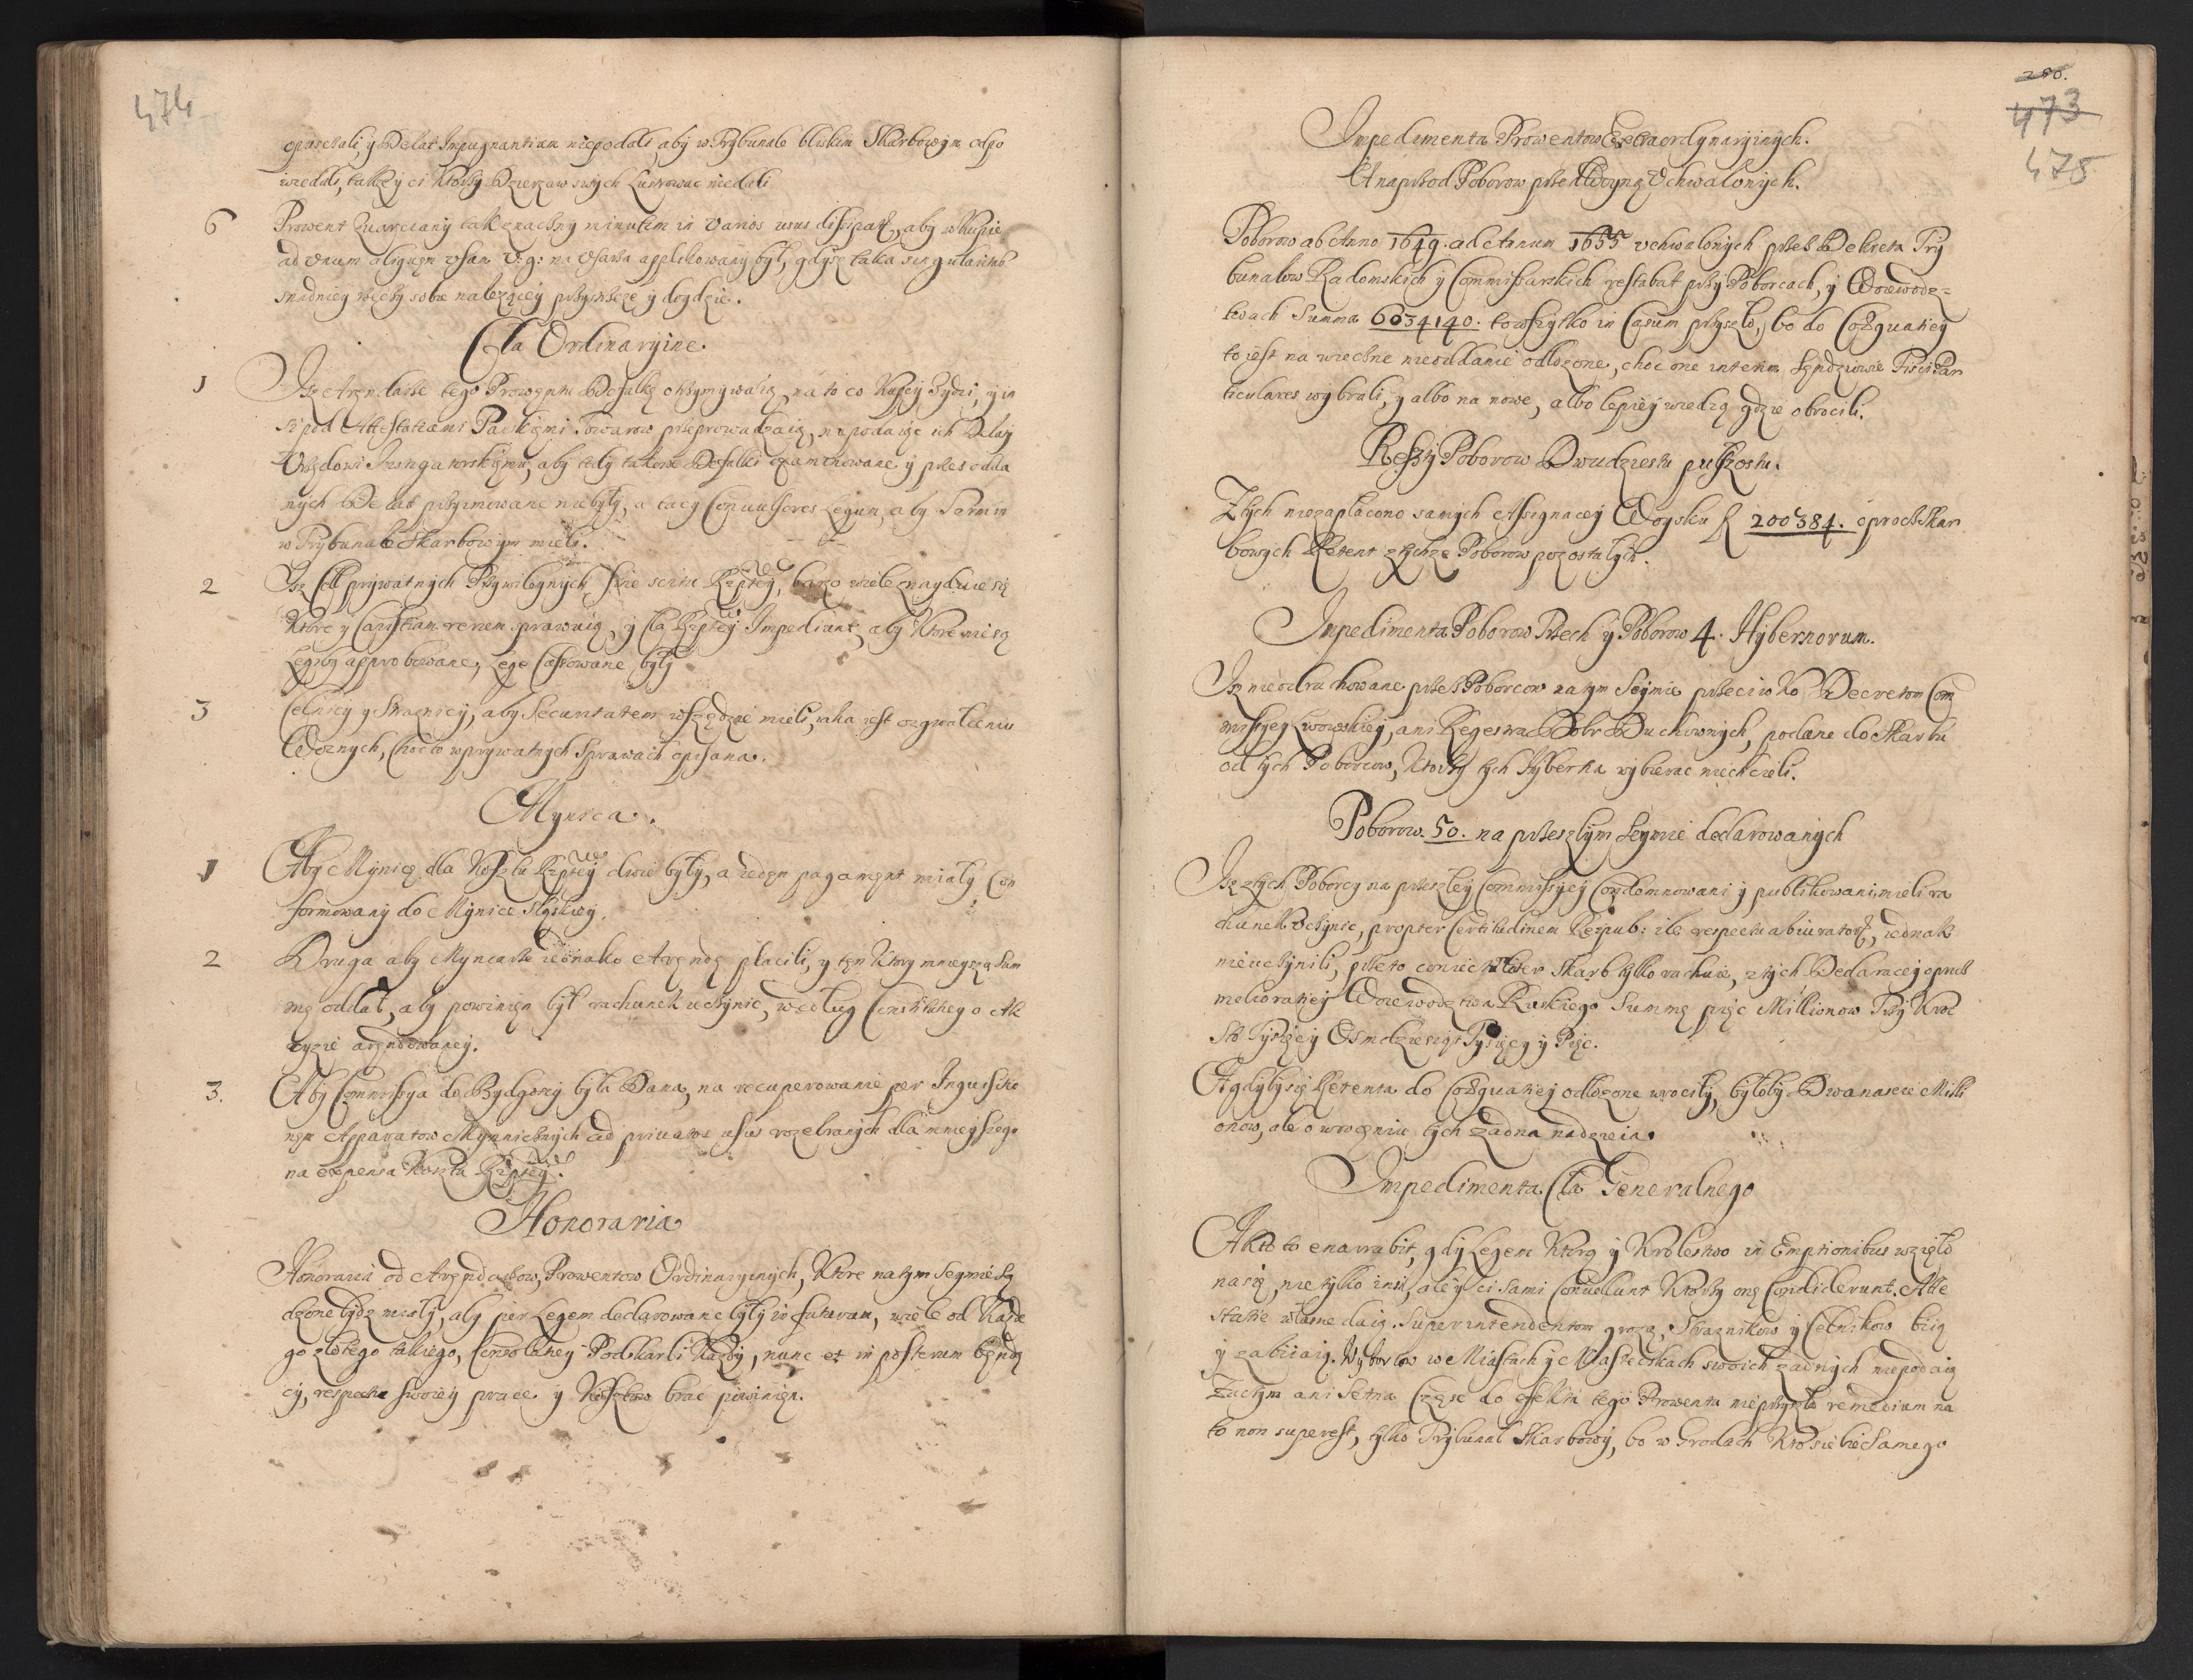 474
opuscali, y Delat Impugnantium niepodali, aby w Trybunale bliskim Skarbowym odpo
wiedali, także y ci ktorzy Dzierzaw swych Lustrowac niedali
6 Prowent Kwarciany tak znaczny minutim in varios usus dissipat, aby w kupie
ad unum aliquem usum v: g: na applikowany był, gdysz taka singularitas
snadniey rzeczy sobie należącey przystrzeze y doydzie.
Cła Ordinaryine.
1 Isz Arendarze tego Prowentu Defalkę otrzymywaią, na to co Kupcy Żydzi, y in
si pod Attestatiami Paczkami Towarow przeprowadzaią, niepodaiąc ich Delaty
Urzędowi Instigatorskiemu, aby tedy takowe Defalki examinowane y przes odda
nych Delat przyimowane niebyły, a tacy Convulsores Legum, aby Farum
w Trybunale Skarbowym mieli.
2 Isz Ceł prywatnych Przywileynych sine scitu Rzptey, barzo wiele znayduie się
ktore y Caristiam rerum sprawuią, y Cła Rzptey Impediunt, aby ktore nie są
Legibus approbowane, Lege Cassowane były
3 Celnicy y Straznicy, aby Securitatem wszędzie mieli, iaka iest o zgwałceniu
Woznych, choc to w prywatnych Sprawach opisana.
Mynica.
1 Aby Mynicę dla Kosztu Rzptey dwie były, a ieden pagament miały Con
formowany do Mynice Sląskiey.
2 Druga aby Myncarze iednako Arendę płacili, y ten ktory mnieyszą Sum
mę oddał, aby powinien był rachunek uczynic, według Constitucyey o Ak
cyzie arendowaney.
3. Aby Commissya do Bydgosczy była Dana, na recuperowanie per
nem Apparatow Mynniczných ad privatos usus rozebranych dla mnieyszego
na expensa Kosztu Rzptey.
Honoraria
Honoraria od Arendarzow, Prowentow Ordinaryinych, ktore na tym Seymie są
dzone bydz miały, aby per Legem declarowane były in futurum, wiele od każde
go złotego takiego, Podskarbi każdy, nunc et in posterum będą
cy, respectu swoiey prace y Kosztow brac powinien.
250.
473
475
Impedimenta Prowentow Extraordynaryinych.
A naprzod Poborow przed Woyną Uchwalonych.
Poborow ab Anno 1649. ad Annum 1655 uchwalonych przes Dekreta Try
bunałow Radomskich y Commissarskich restabat przy Poborcach, y Woiewodz=
twach Summa 6634140. to wszytko in Casum przyszło, bo do Coæquatiey
to iest na wieczne nieoddanie odłozone, choc one interim Sędziowie Fisci Par
ticulares wybrali, y albo na nowe, albo lepiey wiedzą gdzie obrocili.
Reszty Poborow Dwudziestu puszostu.
Z tych niezapłacono samych Assignacey Woysku fl 200384. oprocz Skar
bowych Retent z tychze Poborow pozostałych.
Impedimenta Poborow Trzech y Poborow 4. Hybernorum.
Isz nieodrachowane przes Poborcow na tym Seymie przeciwko Decretom Com
missyey Lwowskiey, ani Regestra Dobr Duchownych, podane do Skarbu
od tych Poborcow, ktorzy tych Hyberna wybierac niechcieli.
Poborow. 50. na przeszłym Seymie declarowanych
Isz z tych Poborcy na przeszłey Commissyey Condemnowani y publikowani, mieli ra
chunek uczynic, propter Certitudinem Reipub: ile respectu abiuratorum, iednak
nieuczynili, przeto Skarb tylko rachuie, z tych Declaracey oprocz
melioratiey Woiewodztwa Ruskiego Summę pięc Millionow Trzy Kroc
Sto Tysięcy Osmdziesiąt Tysięcy y Pięc.
A gdyby się Retenta do Coæquatiey odłozone wrociły, byłoby Dwanascie Milli
onow, ale o wroceniu tych zadna nadzieia.
Impedimenta Cła Generalnego
A kto to enarrabit, gdy Legem ktorą y Krolestwo in Emptionibus wzięło
na się, nie tylko inni, ale y ci sami Convellunt ktorzy onę Condiderunt. Atte
statie własne daią. Superintendentom grożą, Straznikow y Celnikow biią
y zabiiaią. Wyborcow w Miastach y Miasteczkach swoich zadnych niepodaią
Zaczym ani Setna Częsc do efektu tego Prowentu nieprzyszła remedium na
to non superest, tylko Trybunał Skarbowy, bo w Grodach kto siebie Samego